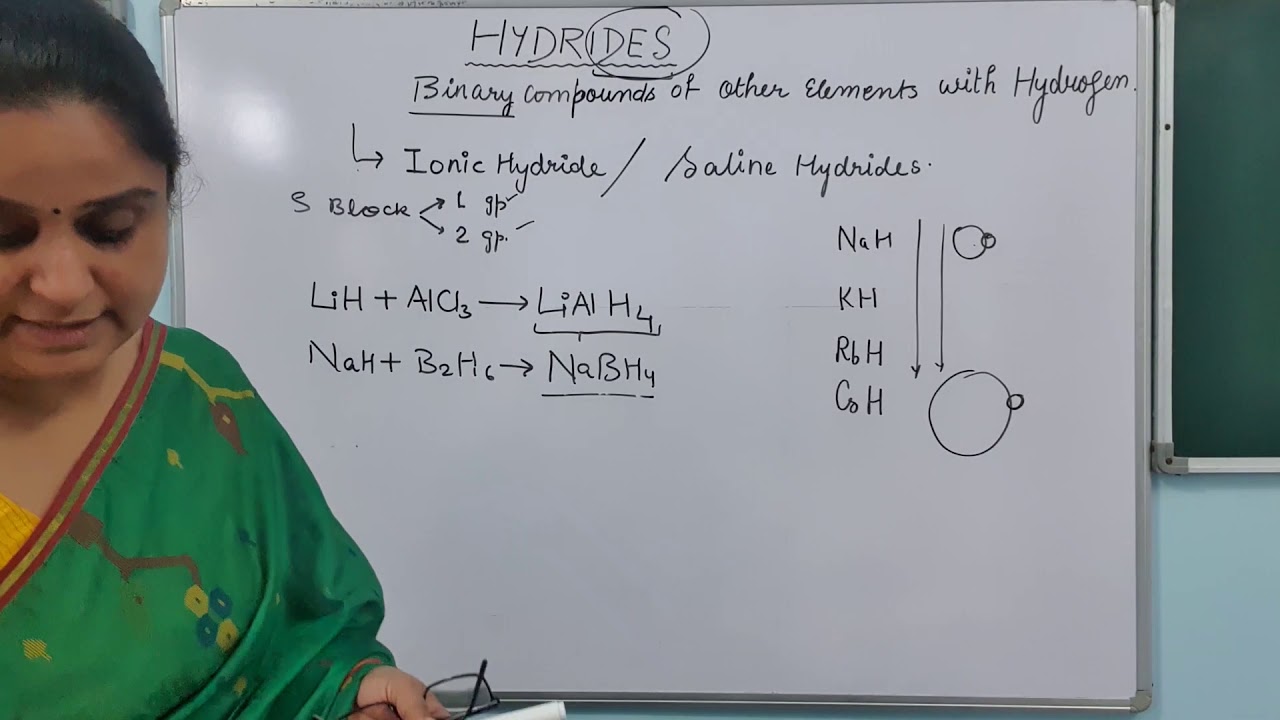 HYDRIDES
Binary compounds of other Elements with Hydrogen.
↳ Ionic Hydride / Saline Hydrides.
S Block → 1 gp ✓
→ 2 gp. ✓
LiH + AlCl3 → LiAlH4
NaH + B2H6 → NaBH4
NaH
KH
RbH
CsH